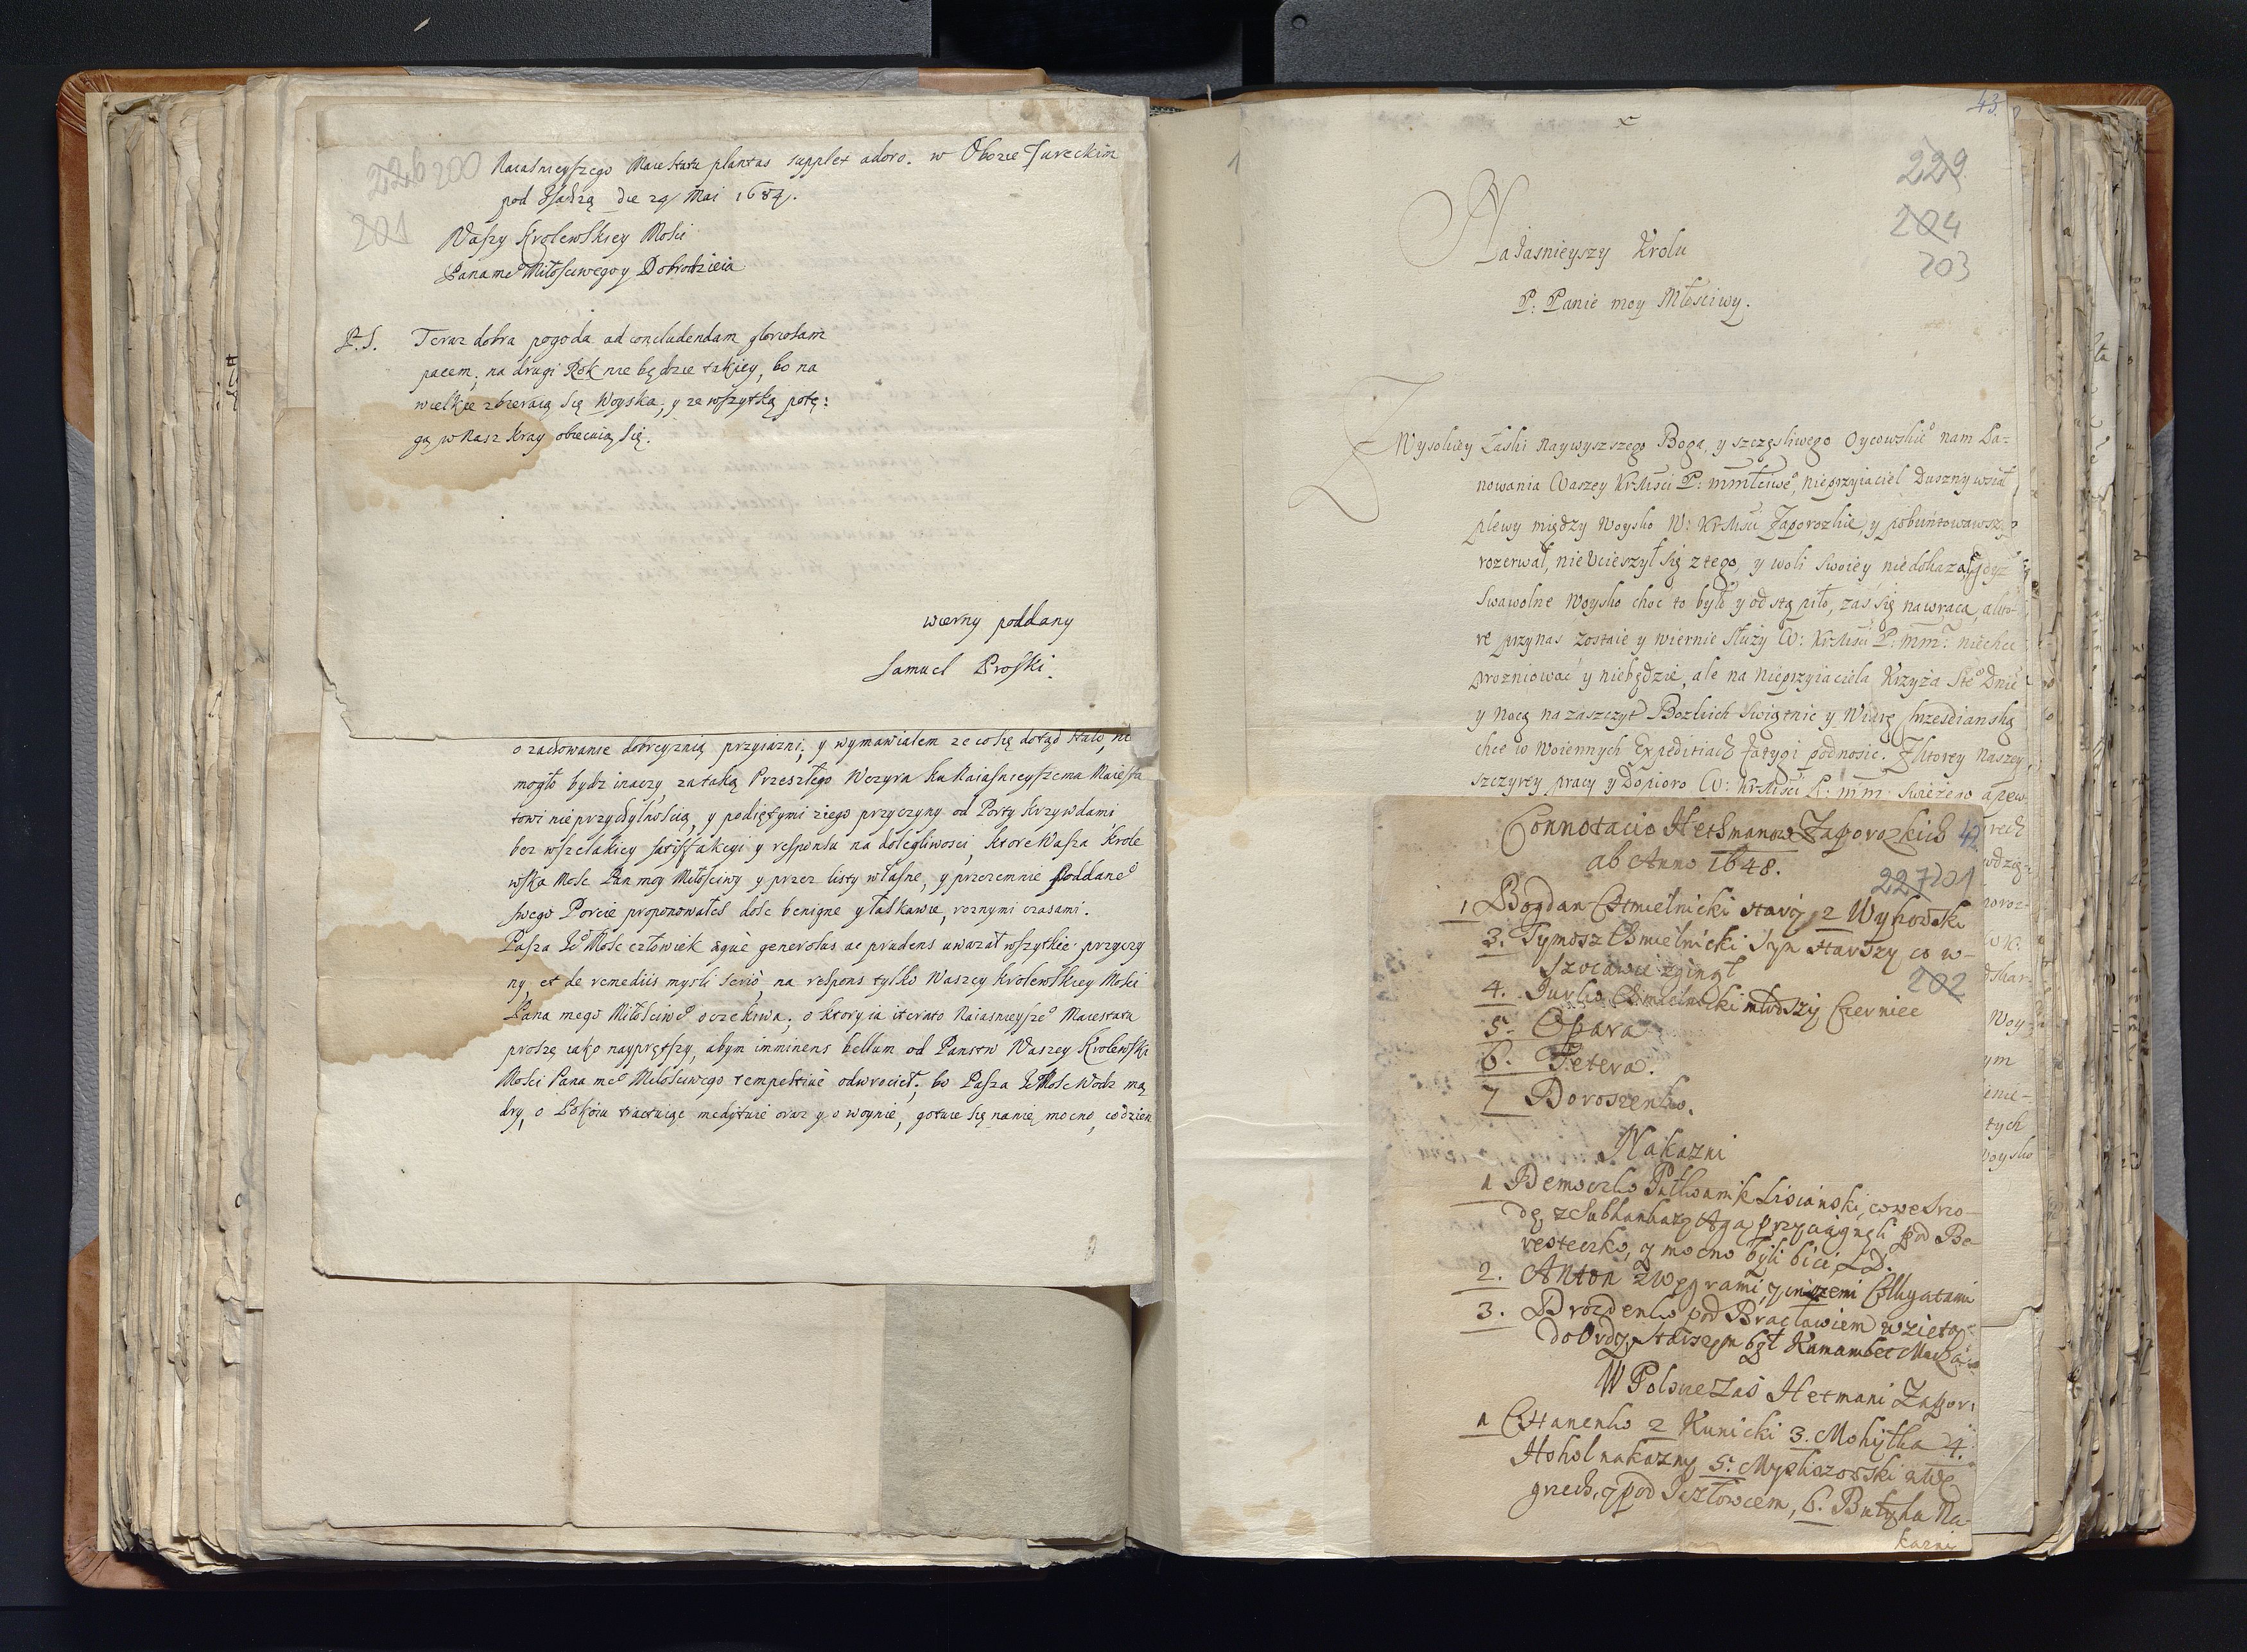 226 200
201
Naiasnieyszego Maiestatu plantas supplex adoro. w Obozie Tureckim
pod die 29 Mai 1684.
Waszy Krolewskiey Mości
Pana me° Miłościwego y Dobrodzieia
P.S. Teraz dobra pogoda ad concludendam gloriosam
pacem, na drugi Rok nie będzie takiey, bo na
wielkie zbieraią się Woyska, y ze wszytką potę:
gą w Nasz Kray obiecuią się.
wierny poddany
Samuel Proski.
o zachowanie dobrey przyiazni, y wymawiałem ze co się dotąd stało, nie
mogło bydz inaczy, za taką Przeszłego Wezyra ku Naiasnieyszema Maiesta
towi nieprzychylnością, y podiętymi ziego przyczyny od Porty krzywdami
bez wszelakiey satisfakcyi y responsu na dolegliwosci, ktore Wasza Krole
wska Mość Pan moy Miłościwy y przez listy własne, y przezemnie Poddane°
swego Porcie proponowałeś dość benigne y łaskawie, roznymi czasami.
Pasza Je° Mość człowiek aque generosus ac prudens uwazał wszytkie przyczy
ny, et de remediis mysli serio, na respons tylko Waszey Krolewskiey Mości
Pana mego Miłościwe° oczekiwa, o ktory ia iterato Naiasnieysze° Maiestatu
proszę iako nayprętszy, abym imminens bellum od Panstw Waszey Krolewski
Mości Pana me° Miłościwego tempestive odwrocieł, bo Pasza Je° Mość Wodz mą
dry, o Pokoiu traktuiąc medytuie oraz y o woynie, gotuie się na nię mocno, co dzien
43
229
204
203
Naiasnieyszy Krolu
P: Panie moy Młościwy.
Z Wysokiey Łaski Naywyszszego Boga, y szczęsliwego Oycowskie° nam Pa=
nowania Waszey KrMści P: mmłciwe°, nieprzyiaciel Duszny wsiał
plewy między Woysko W: KrMści Zaporozkie, y pobuntowawszy
rozerwał, nie Ucieszył się z tego, y woli swoiey niedokazał, gdyz
Swawolne Woysko choc to było y odstąpiło, zas się nawraca, a kto-
re przy nas zostaie y wiernie służy W: KrMści P: mm: niechce
prozniować y niebędzie, ale na Nieprzyiaciela Krzyża Ste° Dnie
y Nocą na zaszczyt Bozkich Swiątnic y Wiarę chrzesdianską
chce w Woiennych Expeditiach fatygi podnosic. Z ktorey naszey
szczyrey pracy y dopioro W: KrMści P: mm: swiezeno a pew-
Connotacio Hethmanow Zaporozkich 42
ab Anno 1648.
227 201
1 Bogdan Chmielnicki stary, 2 Wyhowski
3. Tymosz Chmielnicki syn starszy co w-
Szocawie zginął
202
4. Jurko Chmielnicki młodszy Czerniec
5. Opara
6. Tetera.
7 Doroszenko.
Nakazni
1 Democzko Pułkownik Lisianski, co we Sro-
dę z Subhankazy Agą przyciągnęli pod Be
resteczko, y mocno byli bici, LD.
2. Anton z Węgrami, y inszemi Colligatami
3. Drozdenko pod Bracławiem wzięty
do Ordy, Starszym był
W Polszcze zas Hetmani Zapor:
1 Chanenko 2 Kunicki 3. Mohyłka 4.
Hohol nakazny 5. Mysliszowski w Wę
grzech, y pod Jazłowcem, 6. Butyka Na-
kazni